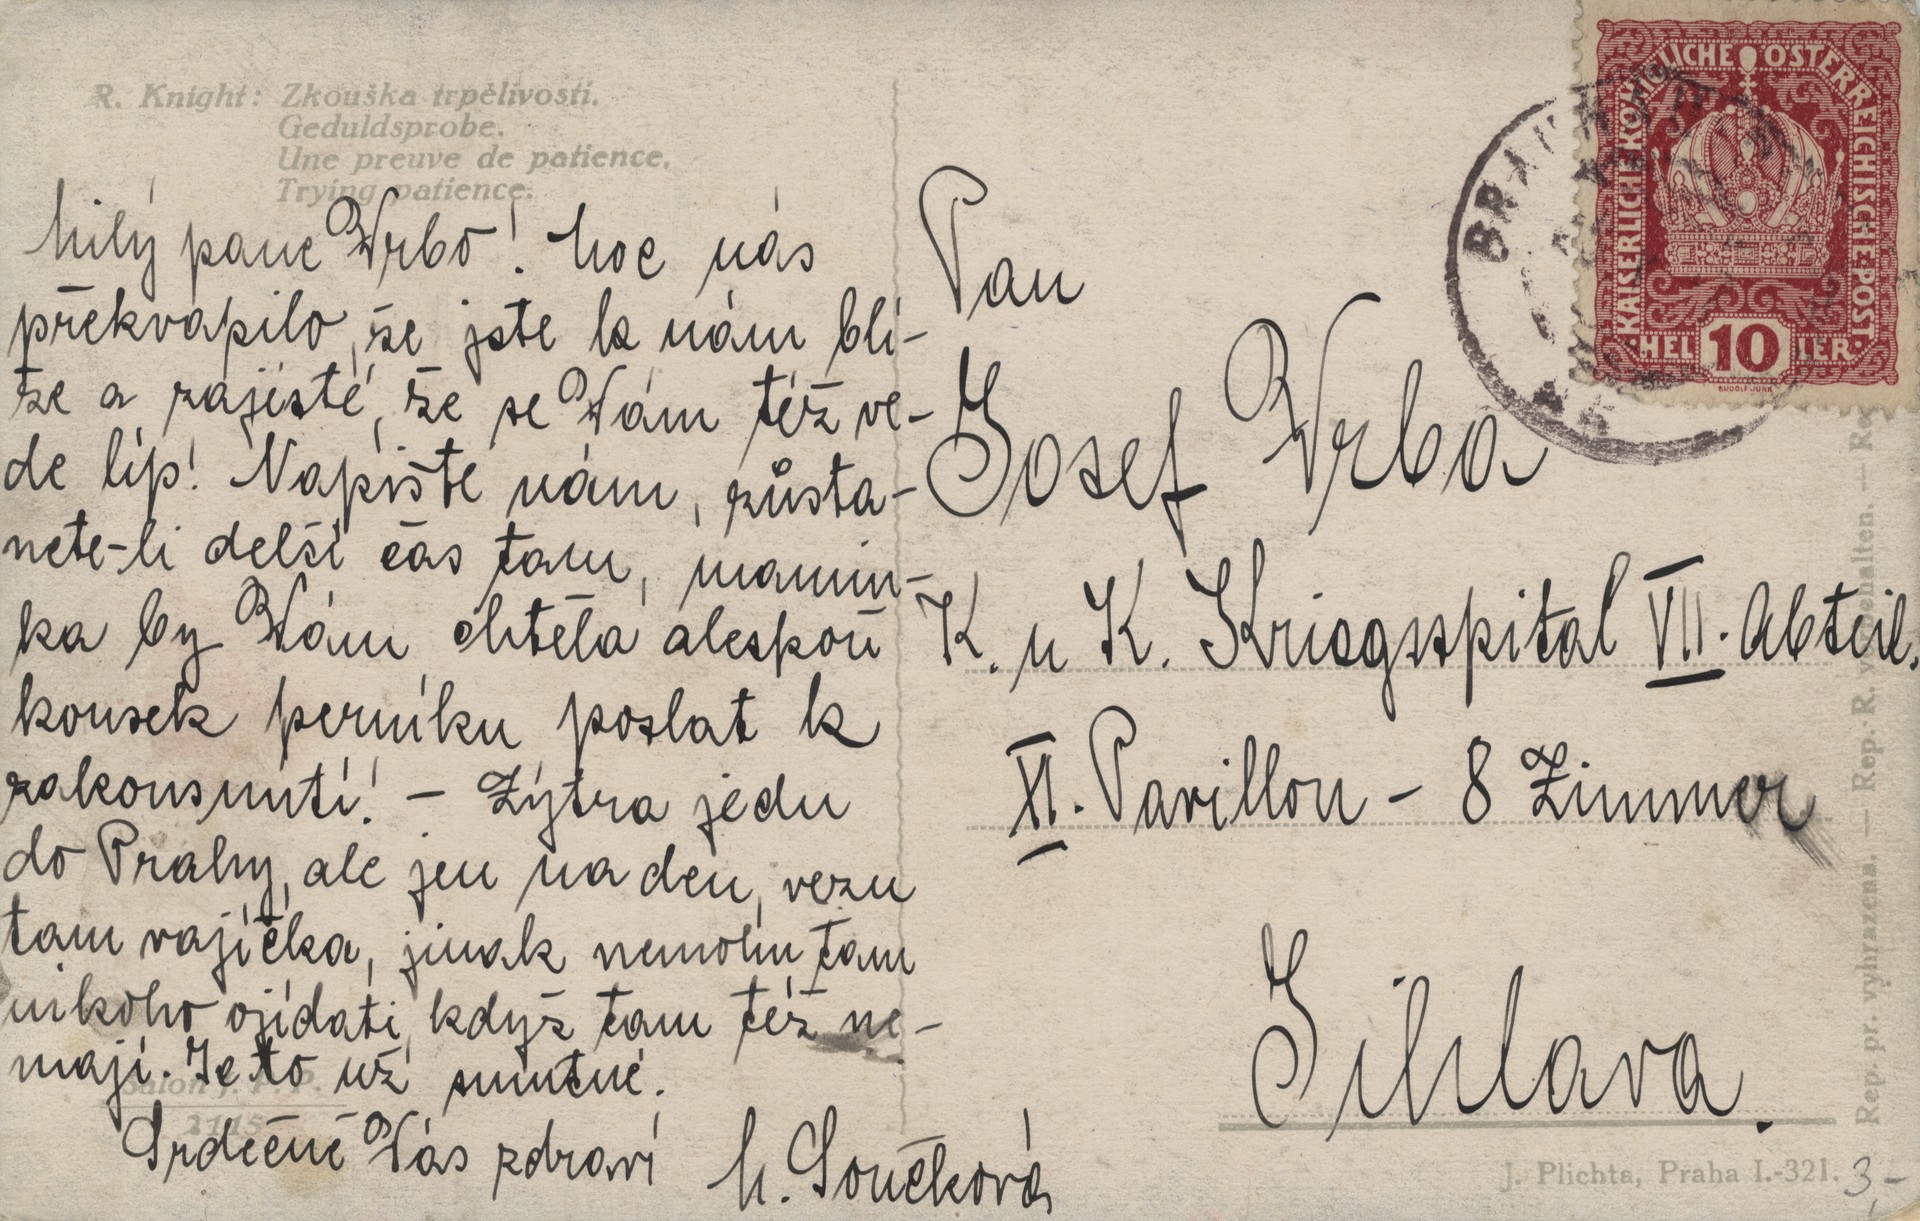 R. Knight: Zkouška trpělivosti.
Geduldsprobe.
Une preuve de patience.
Trying patience.
Milý pane Vrbo! Moc nás
překvapilo, že jste k nám blí-
že a zajisté, že se Vám též ve-
de líp! Napište nám, zůsta-
nete-li delší čas tam, mamin-
ka by Vám chtěla alespoň
kousek perníku poslat k
zakousnutí! – Zýtra jedu
do Prahy, ale jen na den, vezu
tam vajíčka, jinak nemohu tam
nikoho ojídati, když tam též ne-
mají. Je to už smutné.
Srdečně Vás zdraví M. Součková
Pan
Josef Vrba
K. u K. Kriegsspital VII. Abteil.
XI. Pavillon – 8 Zimmer
Jihlava.
KAISERLICHE KÖNIGLICHE ÖSTERREICHISCHE POST
HELLER
10
RUDOLF JUNK
Salon J. P. P.
2115
Rep. pr. vyhrazena. — Rep. R. vorbehalten. — Re
J. Plichta, Praha I.-321.
3,-